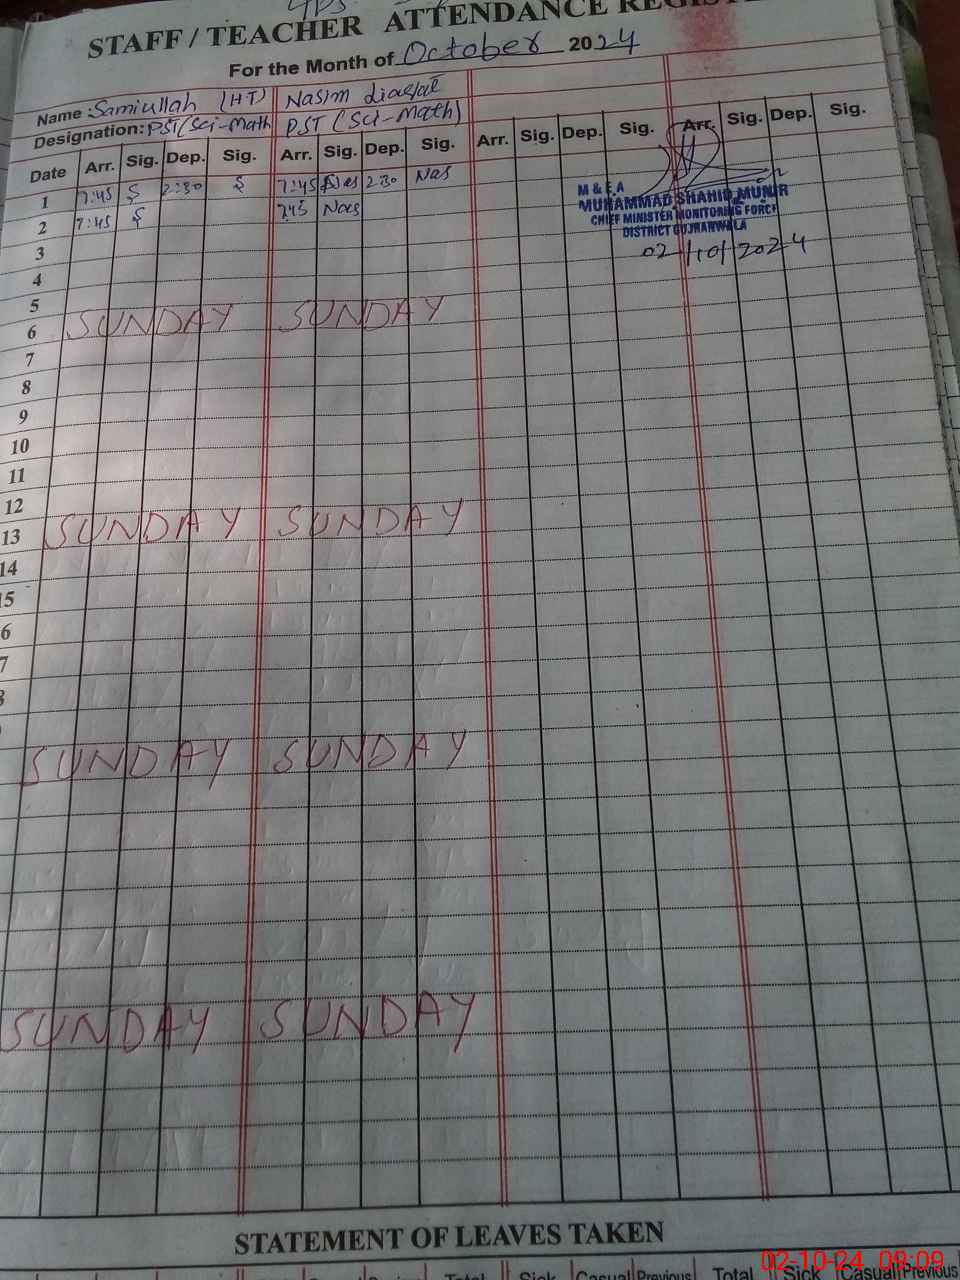 STAFF / TEACHER ATTENDANCE
For the Month of October 2024
Name : Samiullah (HT) Nasim
Designation: PST (Sci-Math PST (Sci-Math)
Date Arr. Sig. Dep. Sig. Arr. Sig. Dep. Sig. Arr. Sig. Dep. Sig. Arr. Sig. Dep. Sig.
1 7:45 2:30 7:45 Nas 2:30 Nas
2 7:45 7:45 Nas
M & E A
MUHAMMAD SHAHID MUNIR
CHIEF MINISTER MONITORING FORCE
DISTRICT GUJRANWALA
02/10/2024
3
4
5
6 SUNDAY SUNDAY
7
8
9
10
11
12
13 SUNDAY SUNDAY
14
15
6
7
SUNDAY SUNDAY
SUNDAY SUNDAY
STATEMENT OF LEAVES TAKEN
Total Sick Casual Previous Total Sick Casual Previous
02-10-24 09:09